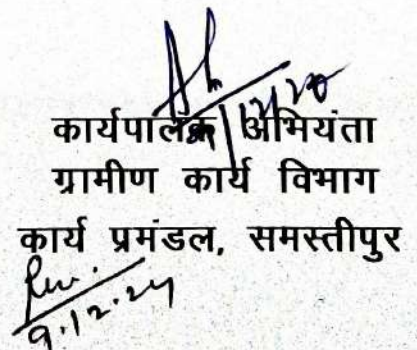 कार्यपालक अभियंता
ग्रामीण कार्य विभाग
कार्य प्रमंडल, समस्तीपुर
9.12.24